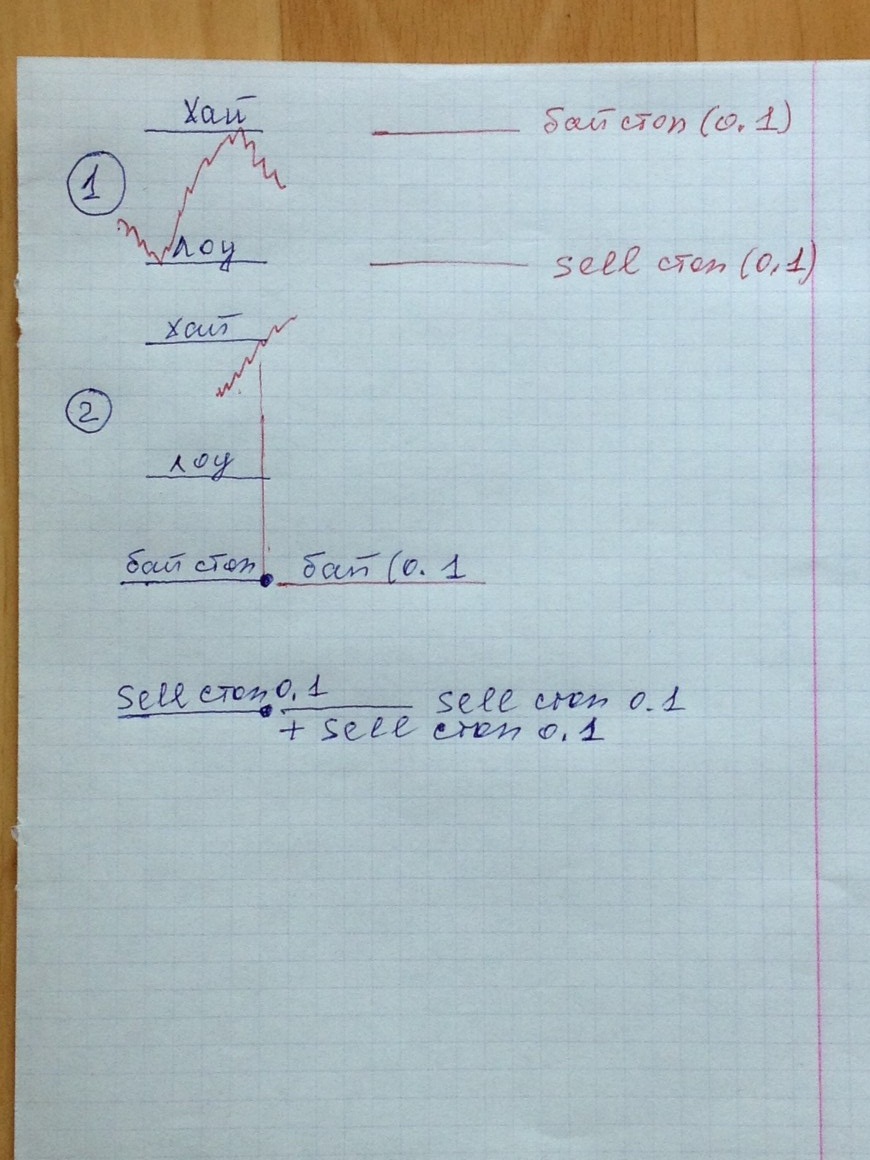 хай
байстоп (0.1)
1
лоу
sell стоп (0,1)
хай
2
лоу
бай стоп
бай (0.1
sell стоп 0.1
sell стоп 0.1
+ sell стоп 0.1